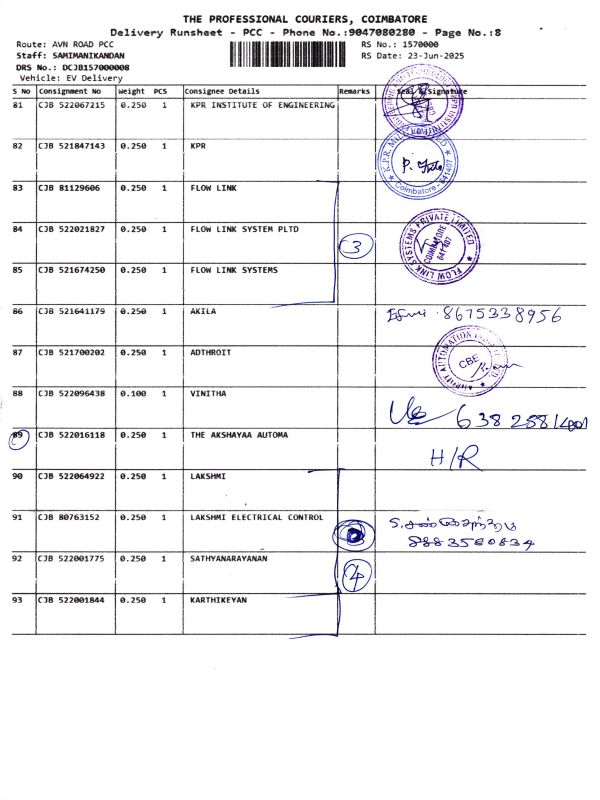 THE PROFESSIONAL COURIERS, COIMBATORE
Delivery Runsheet - PCC - Phone No.:9047080280 - Page No.:8
Route: AVN ROAD PCC RS No.: 1570000
Staff: SAMIMANIKANDAN RS Date: 23-Jun-2025
DRS No.: DCJB157000008
Vehicle: EV Delivery
S No Consignment No Weight PCS Consignee Details Remarks Seal & Signature
81 CJB 522067215 0.250 1 KPR INSTITUTE OF ENGINEERING
82 CJB 521847143 0.250 1 KPR
K.P.R. MILL Coimbatore - 641407
83 CJB 81129606 0.250 1 FLOW LINK
84 CJB 522021827 0.250 1 FLOW LINK SYSTEM PLTD
3
FLOW LINK SYSTEMS PRIVATE LIMITED COIMBATORE 641 407
85 CJB 521674250 0.250 1 FLOW LINK SYSTEMS
86 CJB 521641179 0.250 1 AKILA 8675338956
87 CJB 521700202 0.250 1 ADTHROIT
AUTOMATION CBE
88 CJB 522096438 0.100 1 VINITHA
89 CJB 522016118 0.250 1 THE AKSHAYAA AUTOMA
H/R
90 CJB 522064922 0.250 1 LAKSHMI
91 CJB 80763152 0.250 1 LAKSHMI ELECTRICAL CONTROL
92 CJB 522001775 0.250 1 SATHYANARAYANAN
4
93 CJB 522001844 0.250 1 KARTHIKEYAN